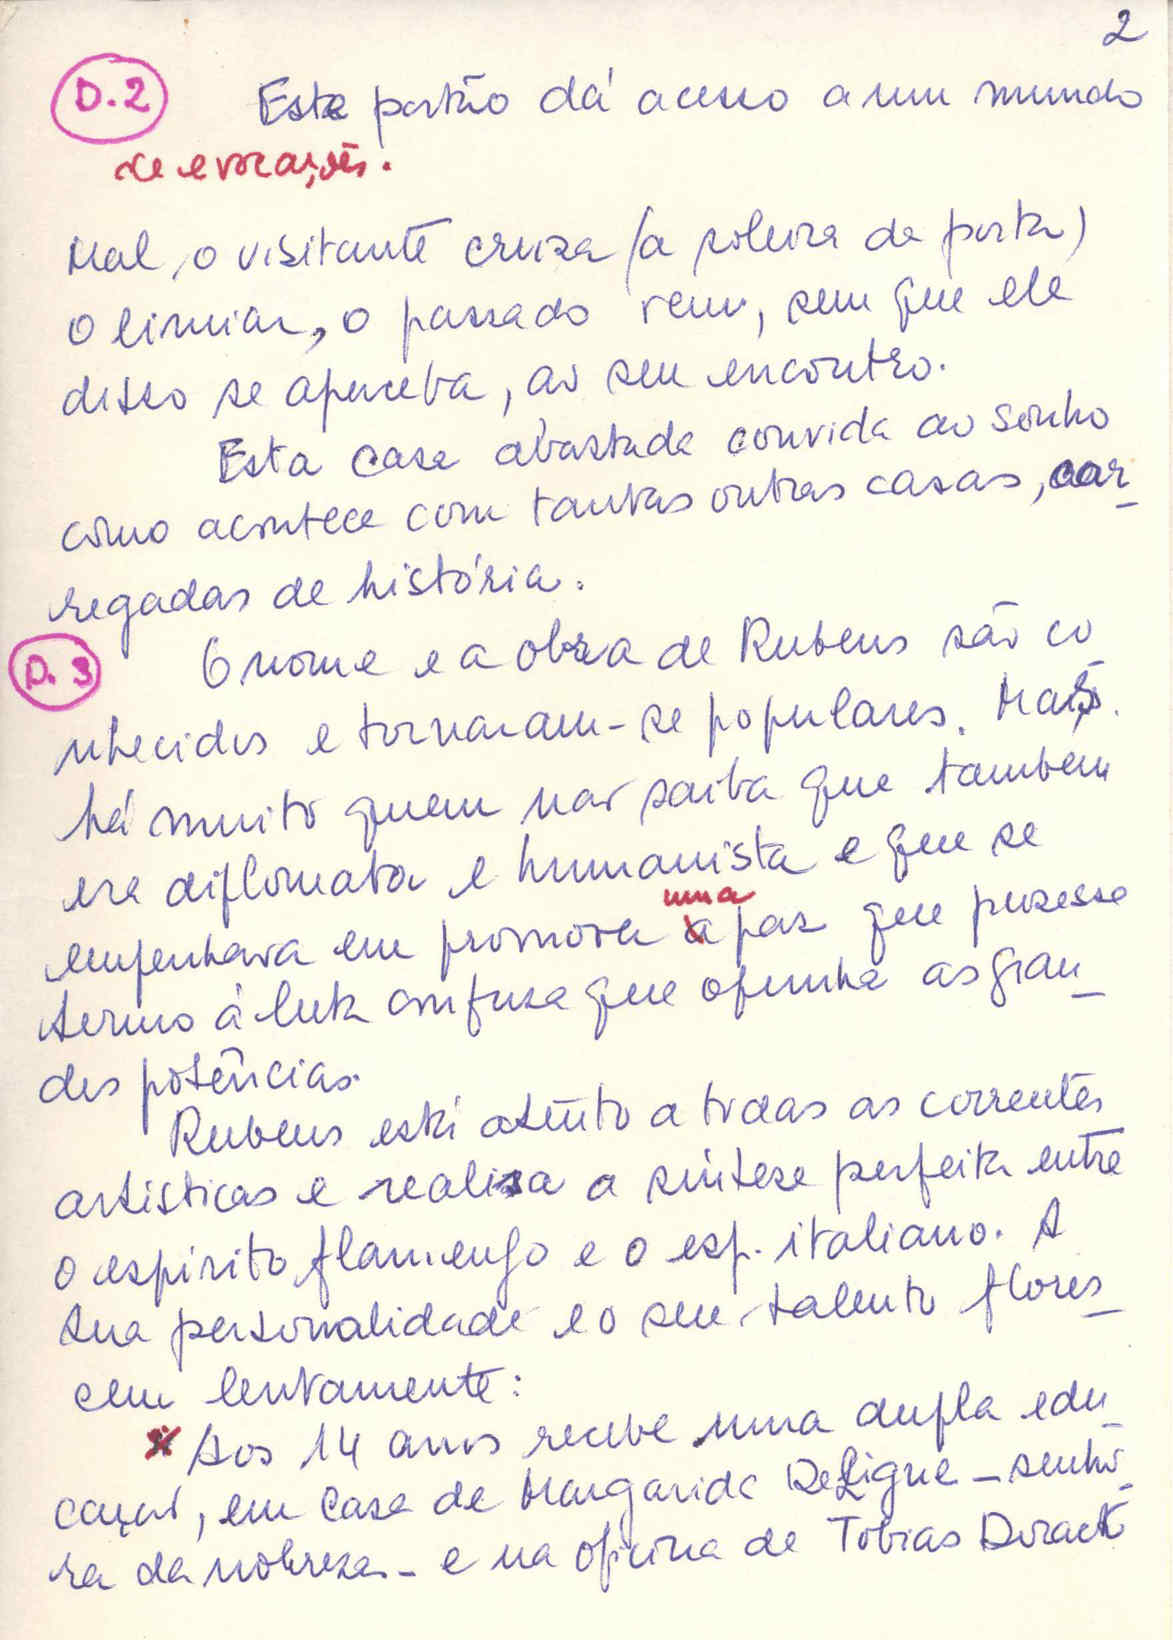 2
D.2 Este portão dá acesso a um mundo
de evocações.
Mal, o visitante cruza (a soleira da porta)
o limiar, o passado vem, sem que ele
disso se aperceba, ao seu encontro.
Esta casa abastada convida ao sonho
como acontece com tantas outras casas, car-
regadas de história.
D.3 O nome e a obra de Rubens são co-
nhecidos e tornaram-se populares. Mas
há muito quem não saiba que também
era diplomata e humanista e que se
uma
empenhava em promover a paz que pusesse
termo à luta confusa que opunha as gran-
des potências.
Rubens está atento a todas as correntes
artísticas e realiza a síntese perfeita entre
o espírito flamengo e o esp. italiano. A
sua personalidade e o seu talento flores-
cem lentamente:
* Aos 14 anos recebe uma dupla edu-
cação, em casa de Margarida De Ligne - senho-
ra da nobreza - e na oficina de Tobias